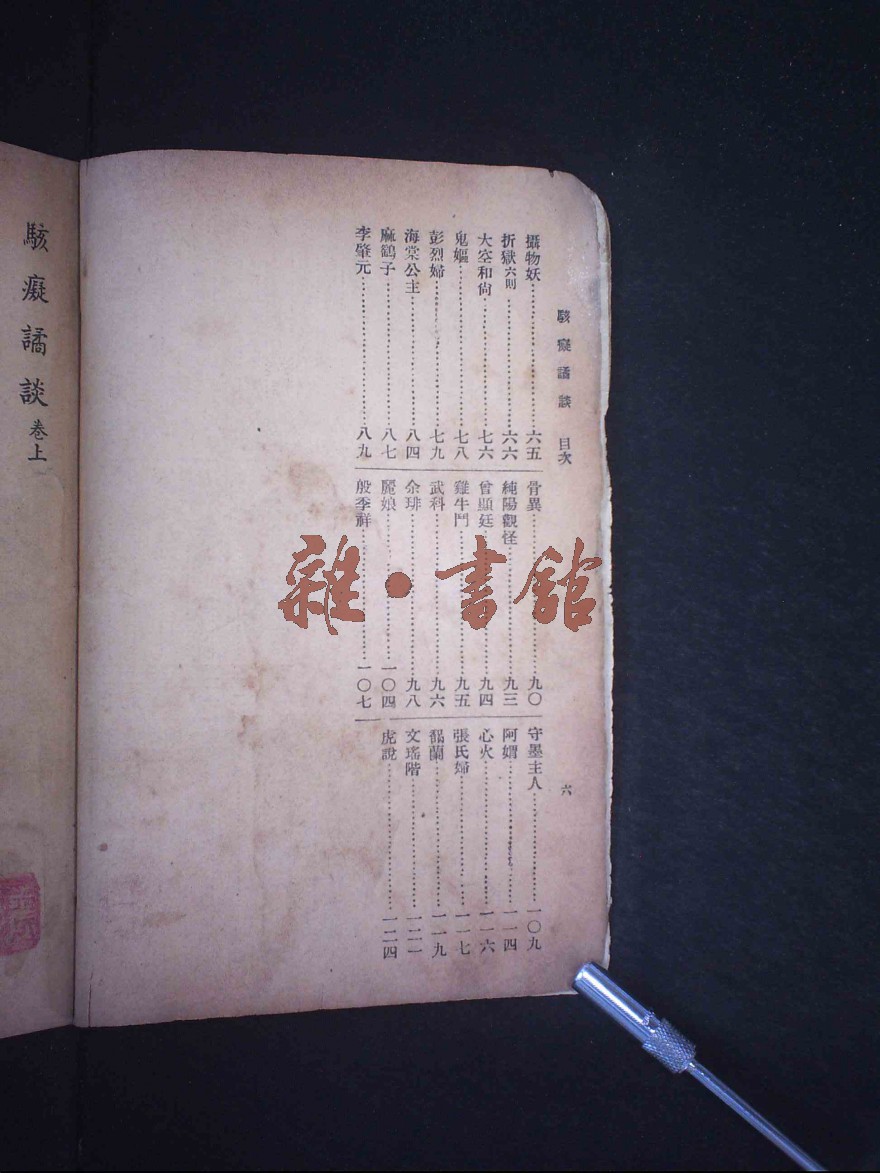 駭癡譎談 目次
六
攝物妖……六五
折獄六則……六六
大空和尙……七六
鬼嫗……七八
彭烈婦……七九
海棠公主……八四
麻鶴子……八七
李肇元……八九
骨異……九〇
純陽觀怪……九三
曾顯廷……九四
雞牛鬥……九五
武科……九六
余琲……九八
麗娘……一〇四
殷季祥……一〇七
守墨主人……一〇九
阿媚……一一四
心火……一一六
張氏婦……一一七
蘭……一一九
文瑤階……一二一
虎說……一二四
駭癡譎談 卷上
雜·書館